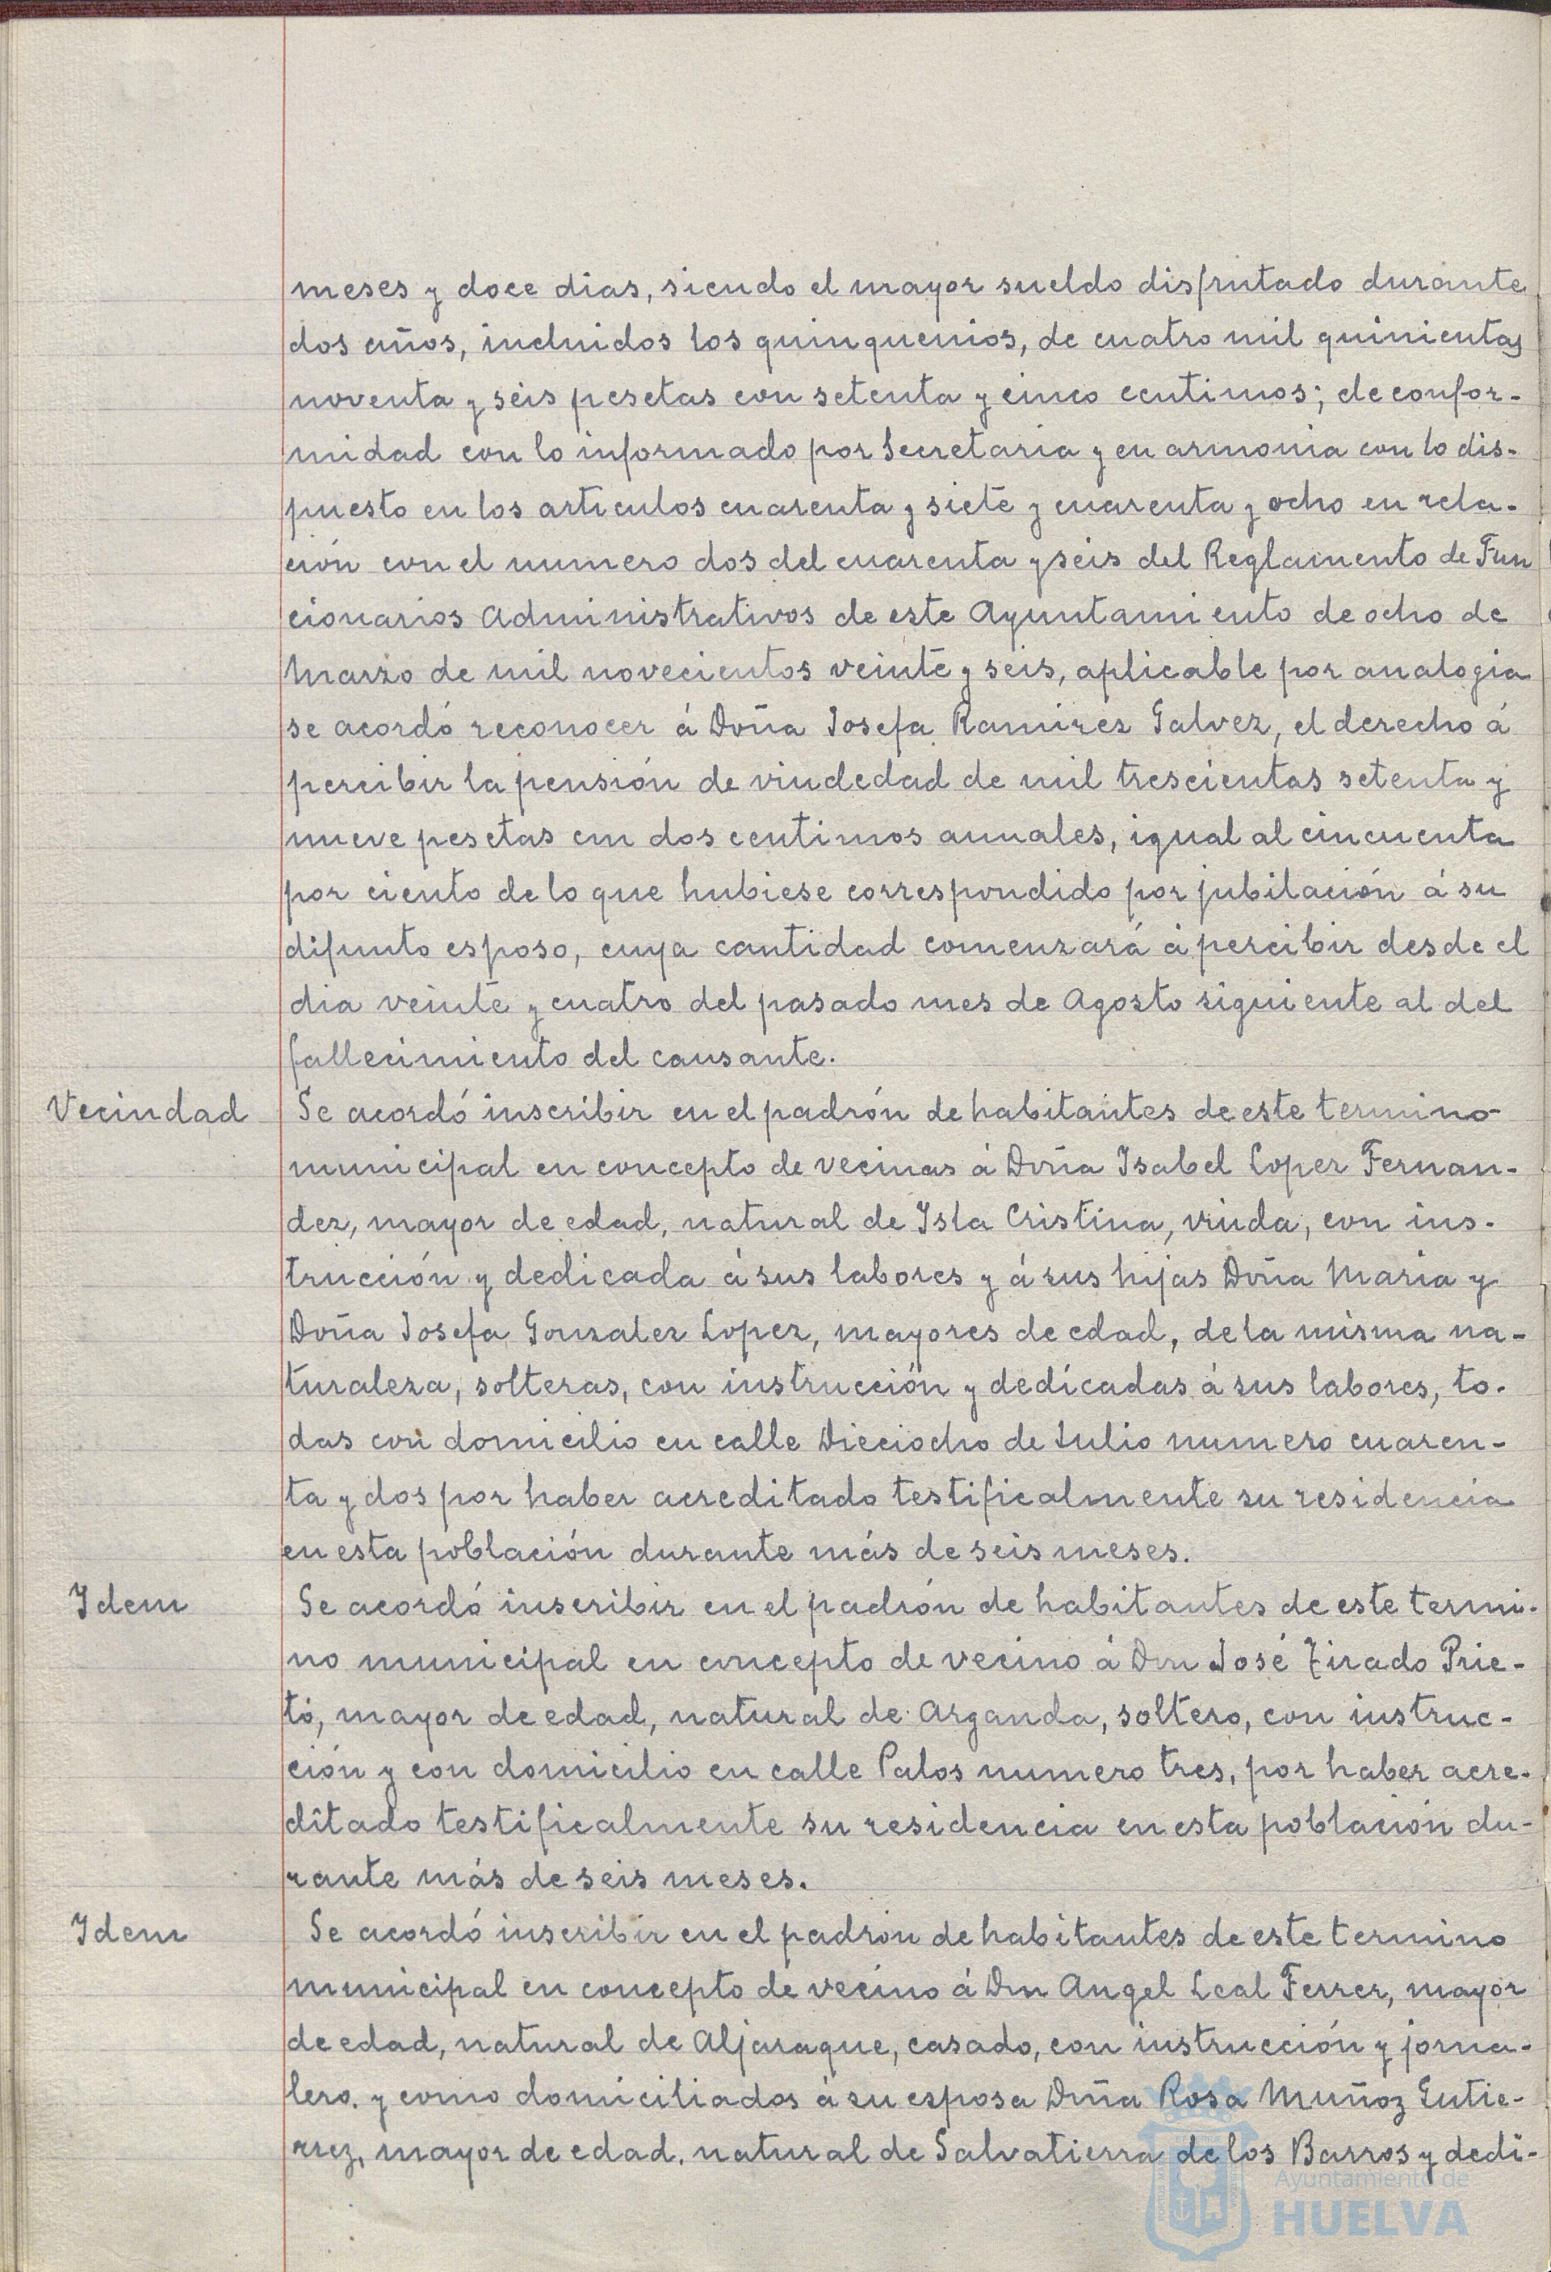 meses y doce dias, siendo el mayor sueldo disfrutado durante
dos años, incluidos los quinquenios, de cuatro mil quinientas
noventa y seis pesetas con setenta y cinco centimos; de confor-
midad con lo informado por Secretaria y en armonia con lo dis-
puesto en los articulos cuarenta y siete y cuarenta y ocho en rela-
ción con el numero dos del cuarenta y seis del Reglamento de Fun
cionarios Administrativos de este Ayuntamiento de ocho de
Marzo de mil novecientos veinte y seis, aplicable por analogia
se acordó reconocer á Doña Josefa Ramirez Galvez, el derecho á
percibir la pensión de viudedad de mil trescientas setenta y
nueve pesetas con dos centimos anuales, igual al cincuenta
por ciento de lo que hubiese correspondido por jubilación á su
difunto esposo, cuya cantidad comenzará á percibir desde el
dia veinte y cuatro del pasado mes de Agosto siguiente al del
fallecimiento del causante.
Vecindad Se acordó inscribir en el padrón de habitantes de este termino
municipal en concepto de vecinas á Doña Isabel Lopez Fernan-
dez, mayor de edad, natural de Isla Cristina, viuda, con ins-
trucción y dedicada á sus labores y á sus hijas Doña Maria y
Doña Josefa Gonzalez Lopez, mayores de edad, de la misma na-
turaleza, solteras, con instrucción y dedicadas á sus labores, to-
das con domicilio en calle Dieciocho de Julio numero cuaren-
ta y dos por haber acreditado testificalmente su residencia
en esta población durante más de seis meses.
Idem Se acordó inscribir en el padrón de habitantes de este termi-
no municipal en concepto de vecino á Don José Tirado Prie-
to, mayor de edad, natural de Arganda, soltero, con instruc-
ción y con domicilio en calle Palos numero tres, por haber acre-
ditado testificalmente su residencia en esta población du-
rante más de seis meses.
Idem Se acordó inscribir en el padrón de habitantes de este termino
municipal en concepto de vecino á Don Angel Leal Ferrer, mayor
de edad, natural de Aljaraque, casado, con instrucción y jorna-
lero. y como domiciliados á su esposa Doña Rosa Muñoz Gutie-
rrez, mayor de edad, natural de Salvatierra de los Barros y dedi-
Ayuntamiento de
HUELVA